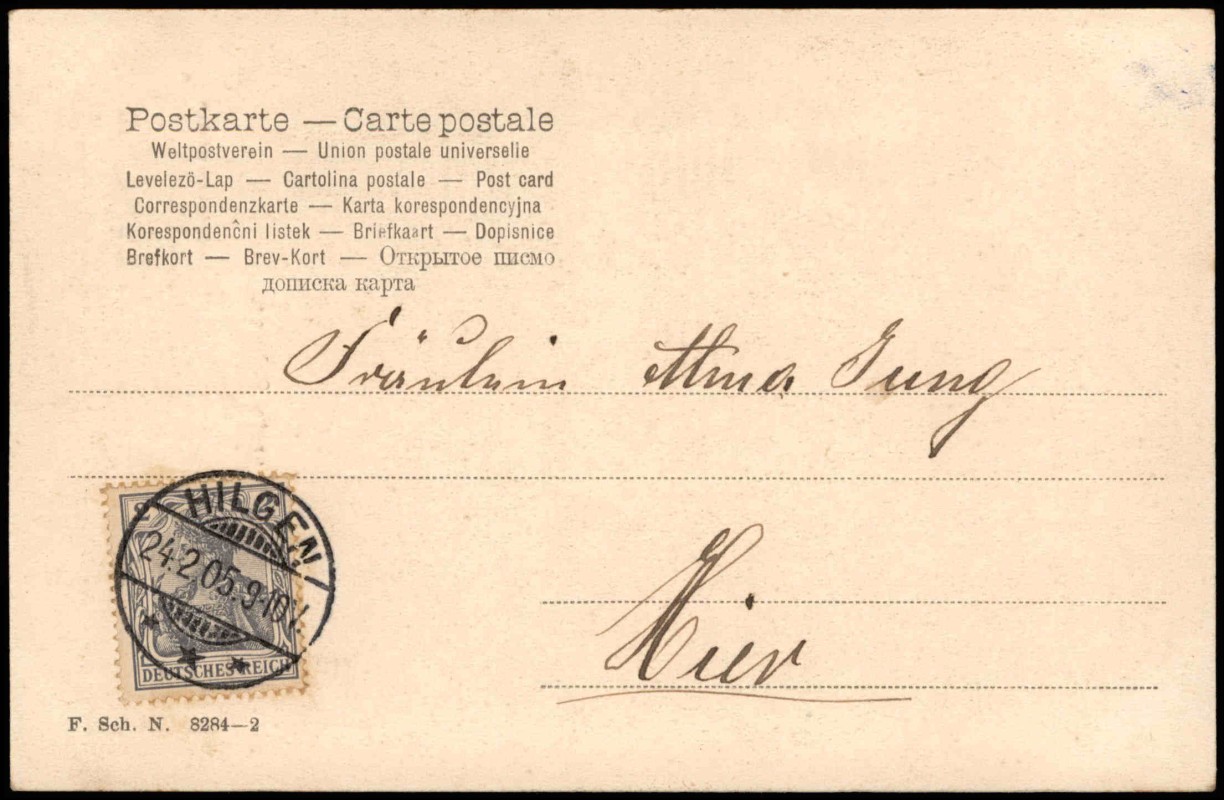 Postkarte — Carte postale
Weltpostverein — Union postale universelle
Levelezö-Lap — Cartolina postale — Post card
Correspondenzkarte — Karta korespondencyjna
Korespondenĉni listek — Briefkaart — Dopisnice
Brefkort — Brev-Kort — Открытое писмо
дописка карта
Fräulein Alma Jung
2
HILGEN
24.2.05.9-10V.
DEUTSCHES REICH
Hier
F. Sch. N. 8284—2